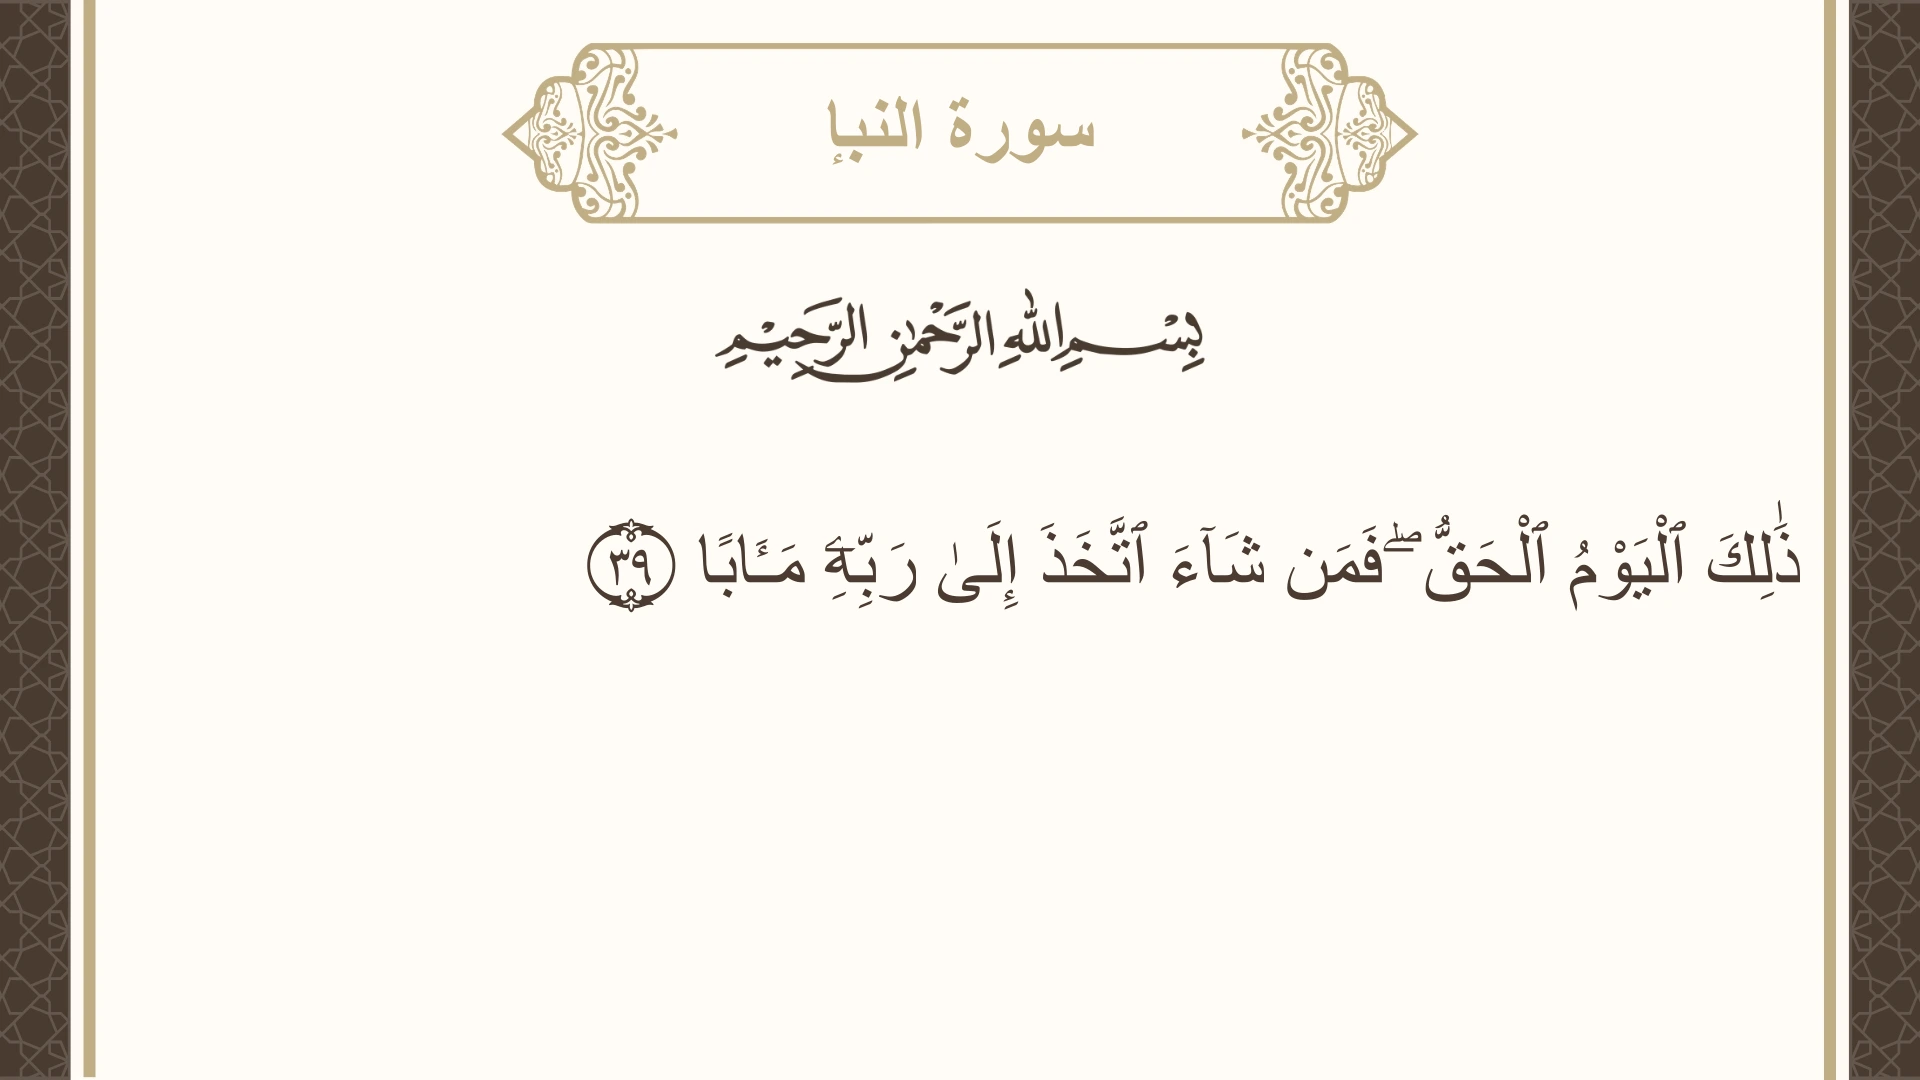 سورة النبإ
بِسْمِ اللهِ الرَّحْمٰنِ الرَّحِيْمِ
ذَٰلِكَ ٱلْيَوْمُ ٱلْحَقُّ ۖ فَمَن شَآءَ ٱتَّخَذَ إِلَىٰ رَبِّهِۦ مَـَٔابًا ٣٩